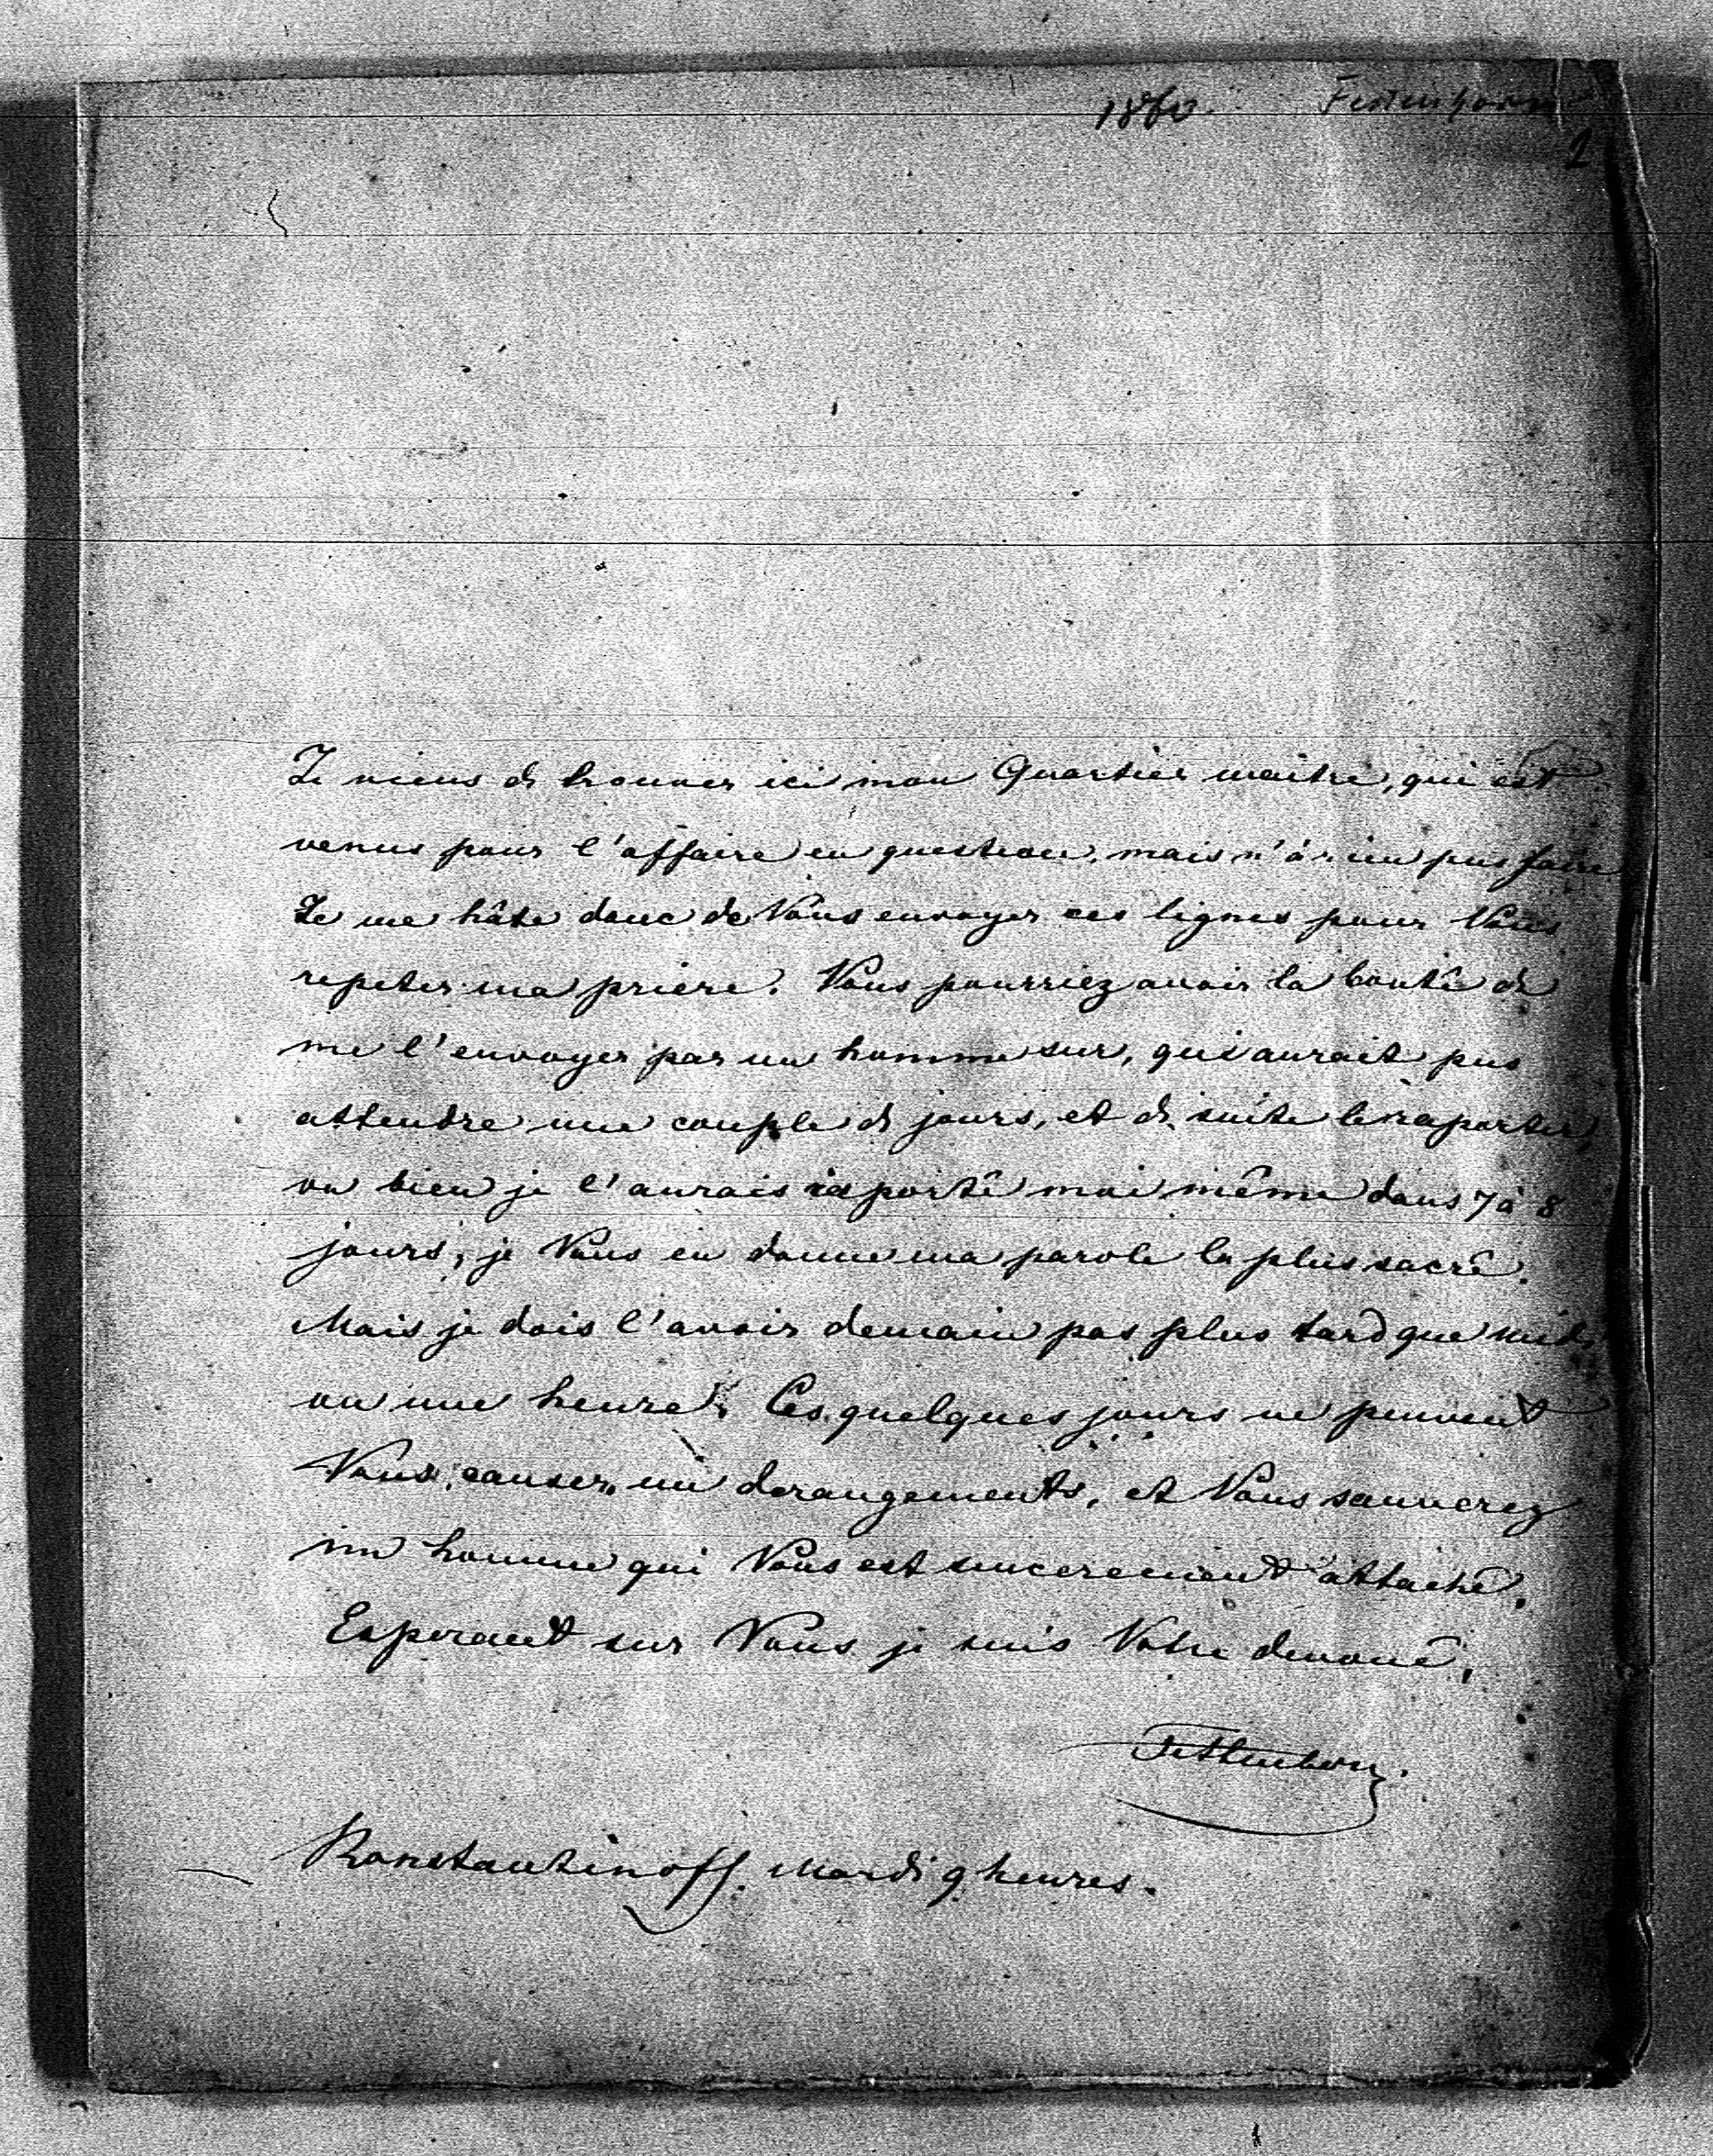 1860.
2
Je viens de trouver ici mon Quartier maitre, qui est
venus pour l'affaire en question, mais n'à rien pus faire
Je me hâte donc de Vous envoyer ces lignes pour Vous
repeter ma priere. Vous pourriez avoir la bonté de
me l'envoyer par un homme sur, qui aurait pus
attendre une couple de jours, et de suite le raporter,
ou bien je l'aurais raporté moi même dans 7 à 8
jours, je Vous en donne ma parole la plus sacré.
Mais je dois l'avoir demain pas plus tard que midi
ou une heure. Ces quelques jours ne peuvent
Vous causer un derangements, et Vous sauverez
un homme qui Vous est sincerement attaché.
Esperant sur Vous je suis Votre devoué,
Fettenborn.
Konstantinoff. Mardi 9 heures.